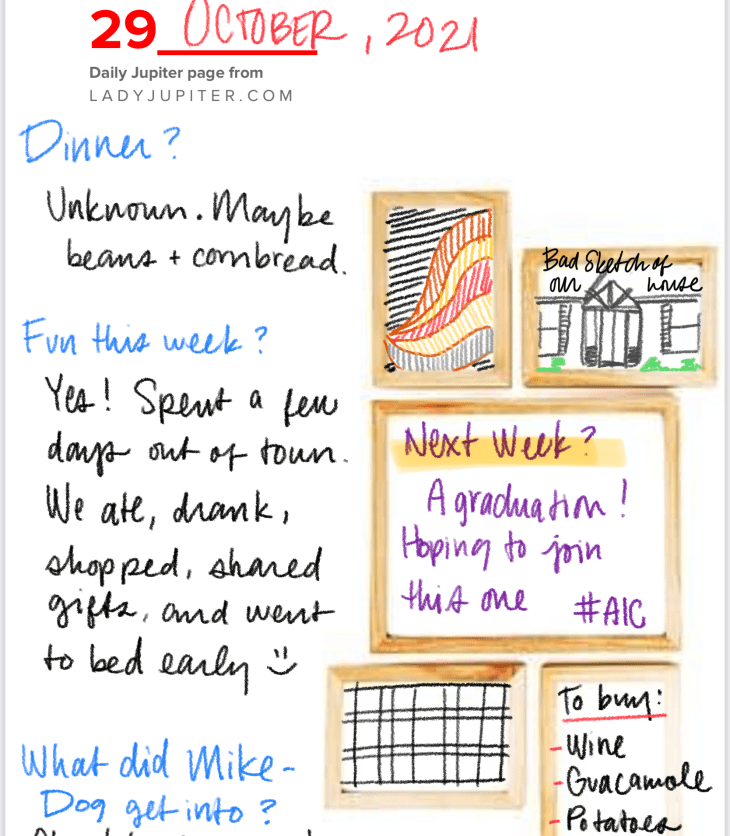 29 OCTOBER, 2021
Daily Jupiter page from
LADYJUPITER.COM
Dinner?
Unknown. Maybe
beans + cornbread.
Fun this week?
Yes! Spent a few
days out of town.
We ate, drank,
shopped, shared
gifts, and went
to bed early
What did Mike-
Dog get into?
Bad Sketch of
our house
Next Week?
A graduation!
Hoping to join
this one #AIC
To buy:
- Wine
- Guacamole
- Potatoes